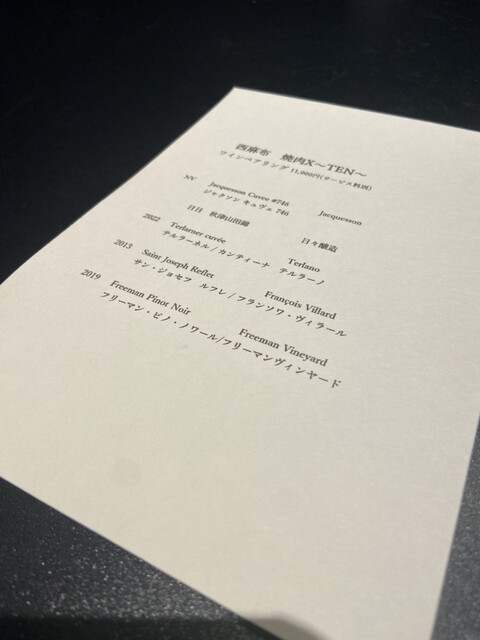 西麻布 焼肉X〜TEN〜
ワインペアリング 11,900円(サービス料別)
NV Jacquesson Cuvee #746 Jacquesson
ジャクソン キュヴェ 746
日日 秋津山田錦 日々醸造
2022 Terlarner cuvée Terlano
テルラーネル / カンティーナ テルラーノ
2013 Saint Joseph Reflet François Villard
サン・ジョセフ ルフレ / フランソワ・ヴィラール
2019 Freeman Pinot Noir Freeman Vineyard
フリーマン・ピノ・ノワール/フリーマンヴィンヤード